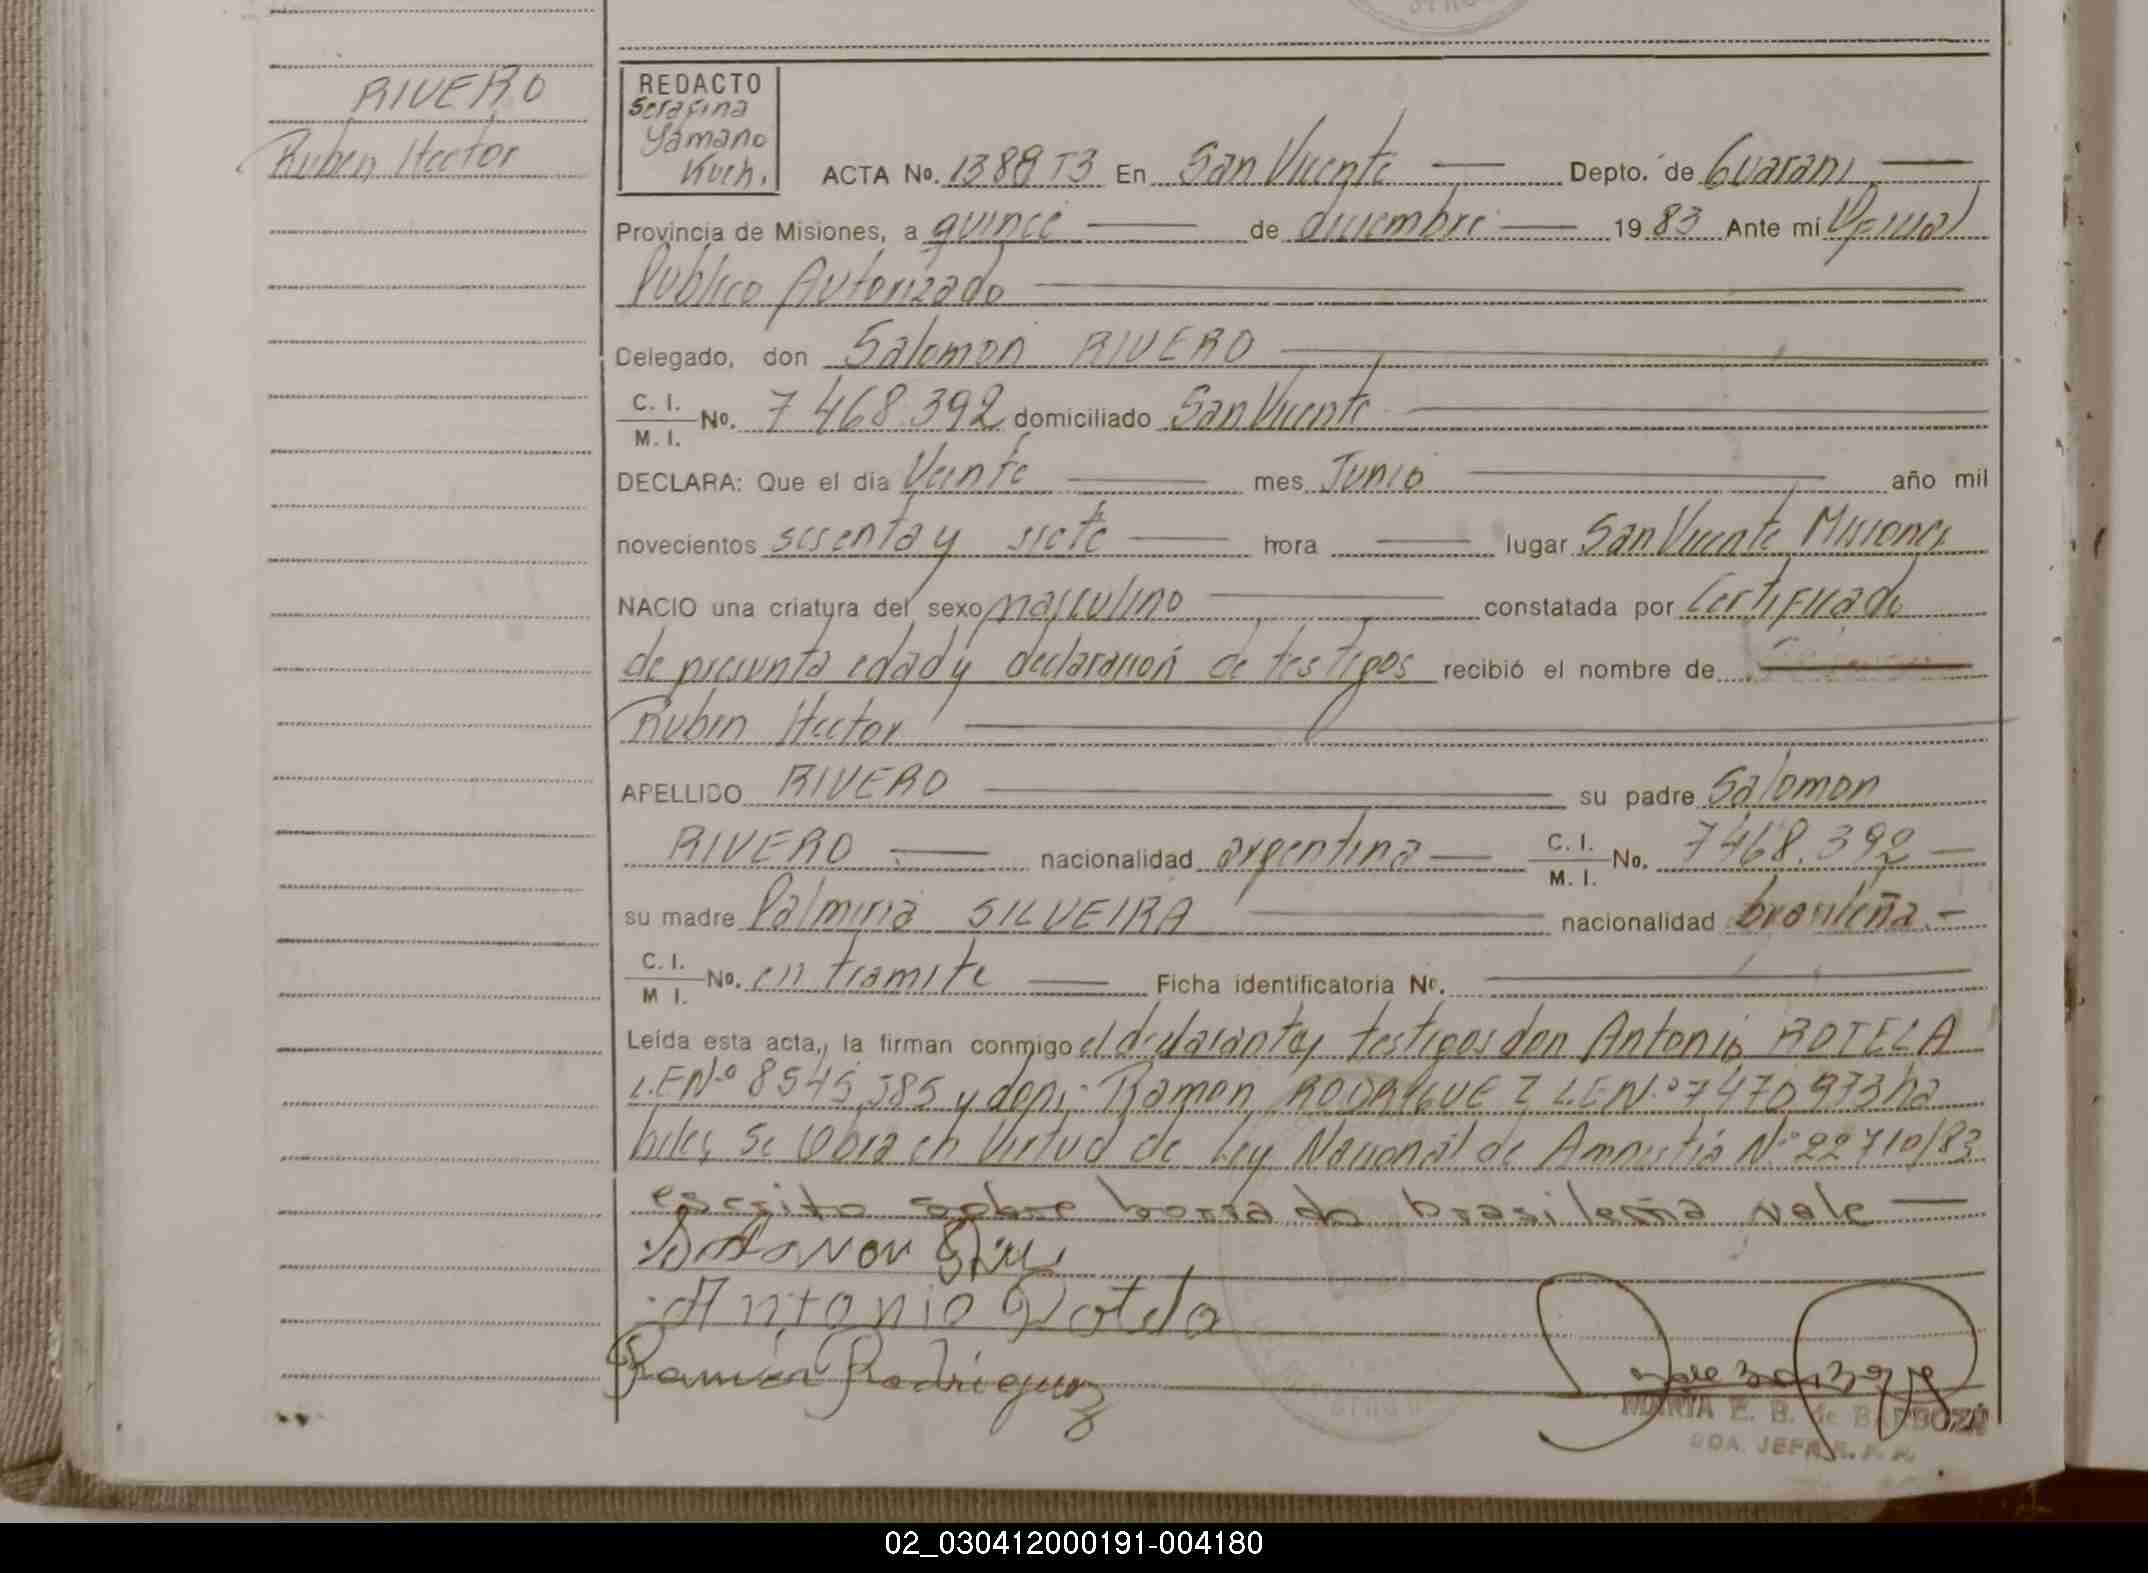 RIVERO
Ruben Hector
REDACTO
Serafina
Yamano
Kuch.
ACTA No. 1388 T3 En San Vicente Depto. de Guarani
Provincia de Misiones, a quince de diciembre 1983 Ante mi Oficial
Publico Autorizado
Delegado, don Salomon RIVERO
C. I.
M. I. No. 7 468.392 domiciliado San Vicente
DECLARA: Que el dia Veinte mes Junio año mil
novecientos sesenta y siete hora lugar San Vicente Misiones
NACIO una criatura del sexo masculino constatada por Certificado
de presunta edad y declaracion de testigos recibió el nombre de
Ruben Hector
APELLIDO RIVERO su padre Salomon
RIVERO nacionalidad argentina C. I.
M. I. No. 7468.392
su madre Palmiria SILVEIRA nacionalidad brasileña
C. I.
M I. No. en tramite Ficha identificatoria No.
Leída esta acta, la firman conmigo el declarante y testigos don Antonio ROTELA
L.E Nº 8545585 y don: Ramon RODRIGUEZ L.E Nº 7470973 ha
biles, Se labra en Virtud de Ley Nacional de Amnistia Nº 22710/83
escrito sobre borrado brasileña vale
Antonio Rotela
Ramón Rodriguez
MARIA E. B. de BARBOZA
02_030412000191-004180